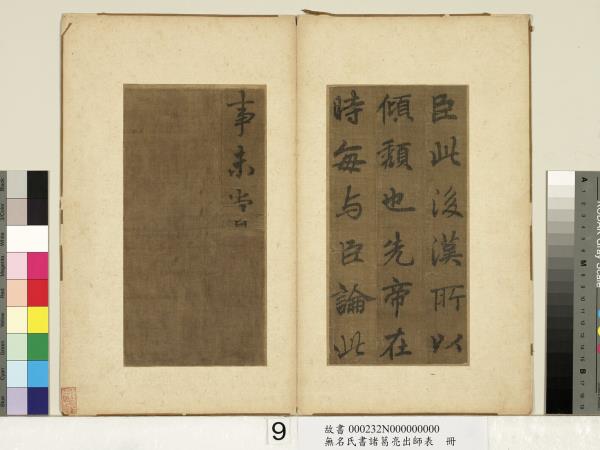 臣此後漢所以
傾頹也先帝在
時每与臣論此
事未嘗
9
故書 000232N000000000
無名氏書諸葛亮出師表 冊
A
M
B